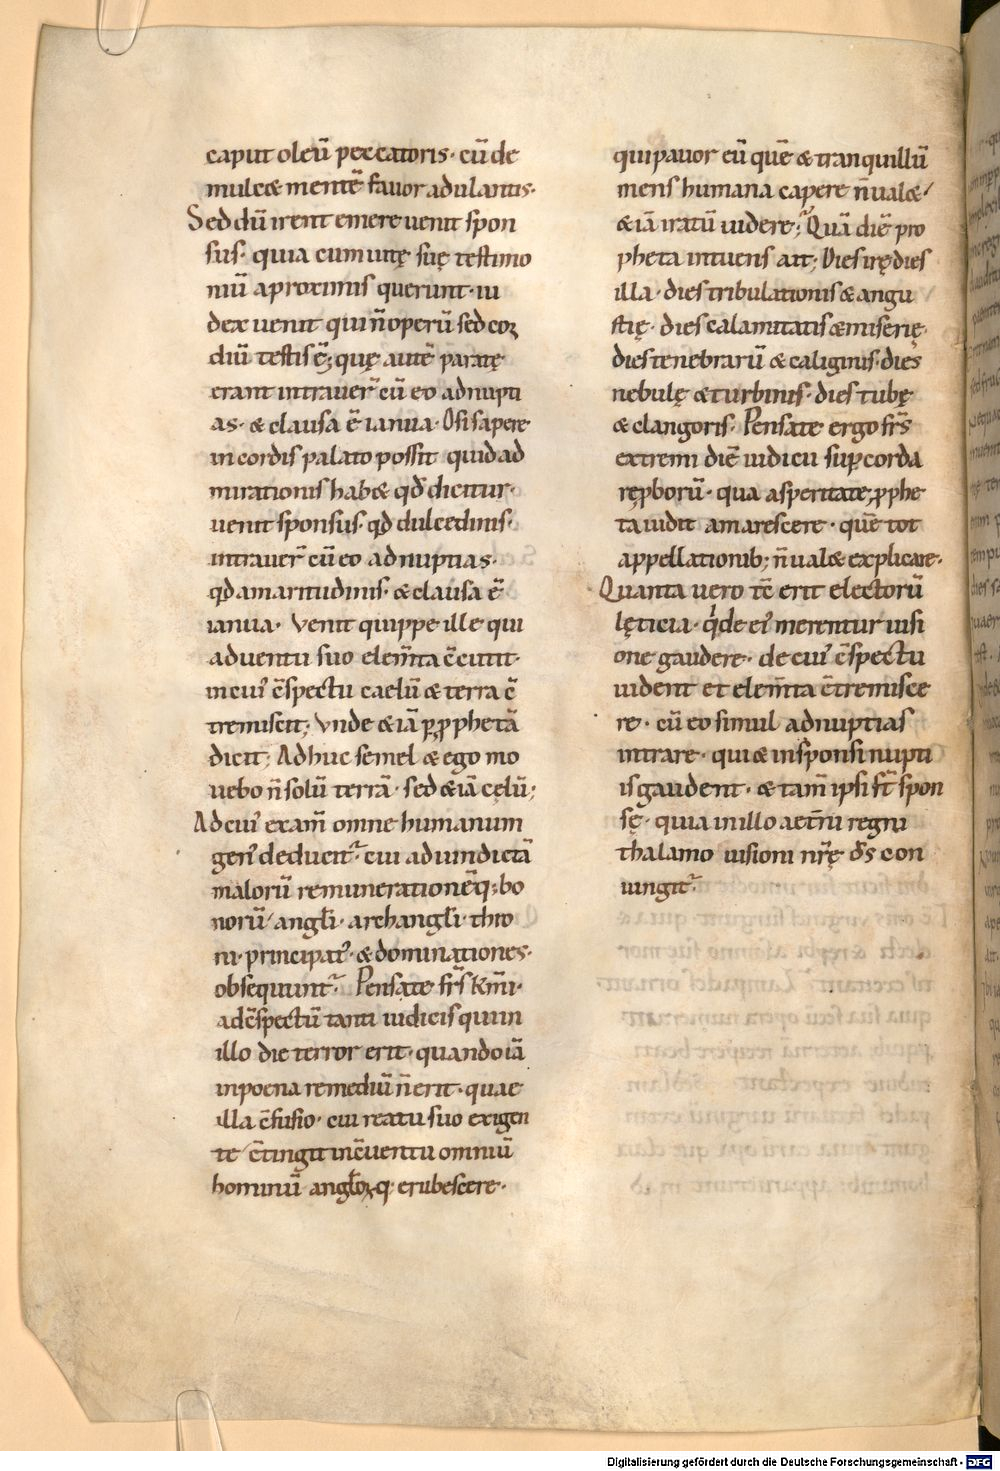 caput oleū peccatoris· cū de
mulcet mentē fauor adulantis·
Sed dū irent emere uenit spon
sus· quia cum uitę suę testimo
niū a proximis querunt· iu
dex uenit qui n̄ operū sed coꝝ
diū testis ē; quę autē paratę
erant intrauer̄ cū eo ad nupti
as· & clausa ē ianua· O si sapere
in cordis palato possit quid ad
mirationis hab& qd̄ dicitur·
uenit sponsus· qd̄ dulcedinis·
intrauer̄ cū eo ad nuptias·
qd̄ amaritudinis· & clausa ē
ianua· Venit quippe ille qui
aduentu suo elem̄ta c̄cutit·
in cuiꝰ c̄spectu caelū & terra c̄
tremiscit; Vnde & iā ꝑ ꝓphetā
dicit; Adhuc semel & ego mo
uebo n̄ solū terrā· sed & iā cęlū;
Ad cuiꝰ exam̄ omne humanum
genꝰ deducit᷑· cui ad uindictā
malorū remunerationēq; bo
norū angl̄i· archangl̄i· thro
ni· principatꝰ· & dominationes·
obsequunt᷑· Pensate fr̄s km̄i·
ad c̄spectū tanti iudicis qui in
illo die terror erit· quando iā
in poena remediū n̄ erit· quae
illa c̄fusio· cui reatu suo exigen
te c̄tingit in c̄uentu omniū
hominū angl̄oꝝq; erubescere·
qui pauor eū quē & tranquillū
mens humana capere n̄ ual&
& iā iratū uidere; Quā diē pro
pheta intuens ait; Dies irę dies
illa· dies tribulationis & angu
stię· dies calamitatis & miserię·
dies tenebrarū & caliginis· dies
nebulę & turbinis· dies tubę
& clangoris· Pensate ergo fr̄s
extremi diē iudicii suꝑ corda
reꝓborū· qua asperitate ꝓphe
ta uidit amarescere· quē tot
appellationib; n̄ ual& explicare·
Quanta uero tc̄ erit electorū
lęticia· q̇ de eiꝰ merentur uisi
one gaudere· de cuiꝰ c̄spectu
uident et elem̄ta c̄tremisce
re· cū eo simul ad nuptias
intrare· qui & in sponsi nupti
is gaudent· & tam̄ ipsi st̄ spon
sę· quia in illo aet̄ni regni
thalamo uisioni nr̄ę d̄s con
iungit᷑·
Digitalisierung gefördert durch die Deutsche Forschungsgemeinschaft - DFG